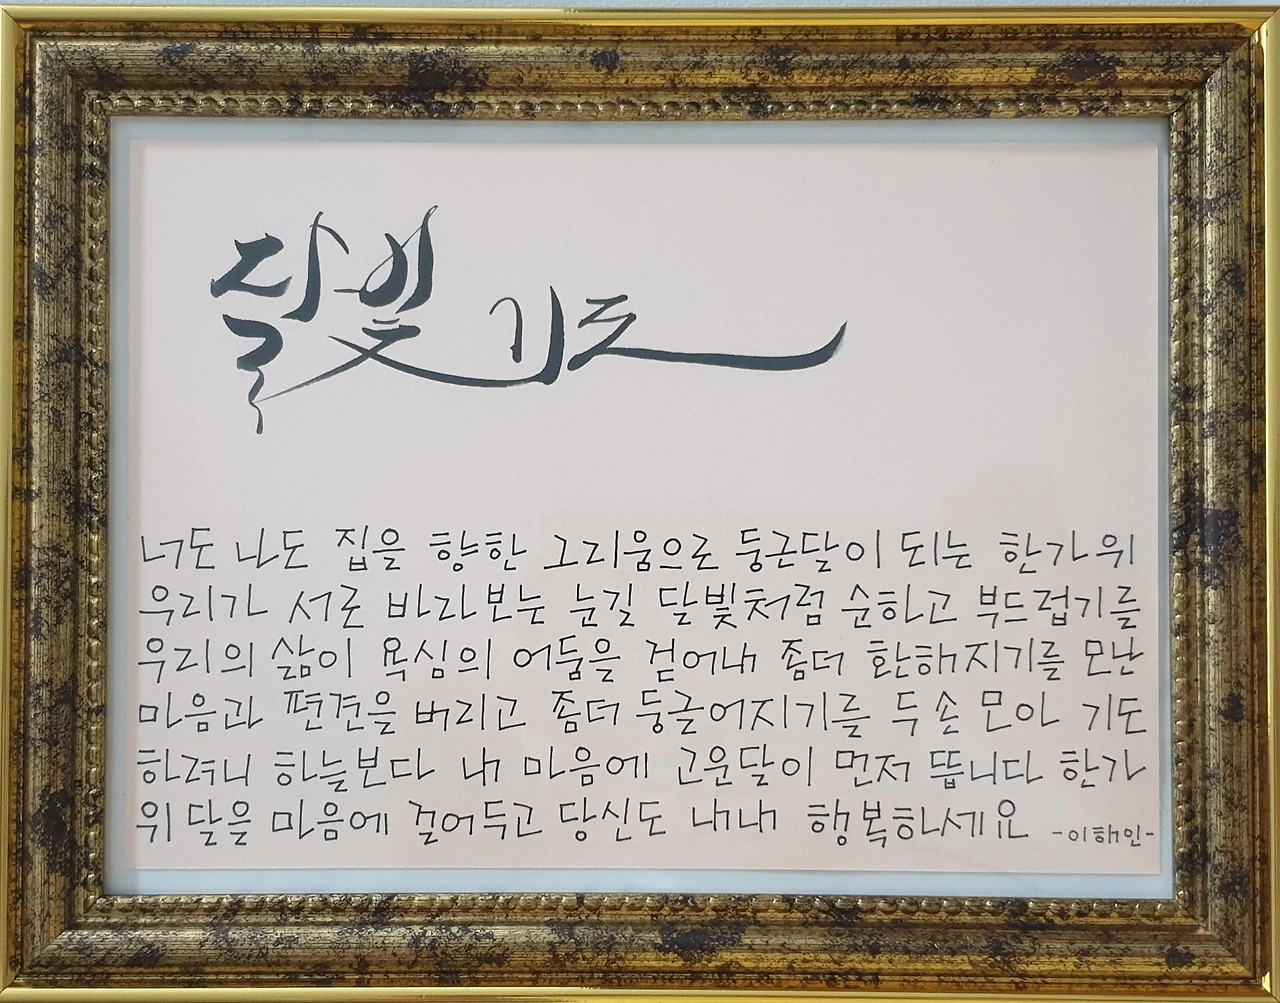 달빛 기도
너도 나도 집을 향한 그리움으로 둥근달이 되는 한가위
우리가 서로 바라보는 눈길 달빛처럼 순하고 부드럽기를
우리의 삶이 욕심의 어둠을 걷어내 좀더 환해지기를 모난
마음과 편견을 버리고 좀더 둥글어지기를 두 손 모아 기도
하려니 하늘보다 내 마음에 고운달이 먼저 뜹니다 한가
위 달을 마음에 걸어두고 당신도 내내 행복하세요 -이해인-